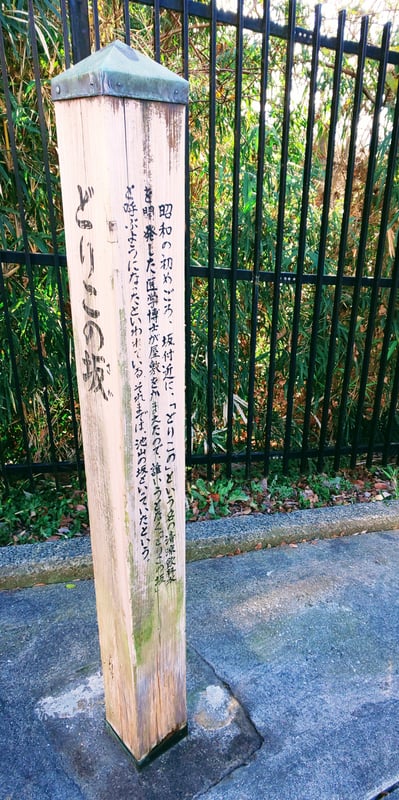 どりこの坂
ざか
昭和の初めごろ、坂付近に、「どりこの」という名の清涼飲料水
を開発した医学博士が屋敷をかまえたので、誰いうとなく「どりこの坂」
と呼ぶようになったといわれている。それまでは、池山の坂といっていたという。